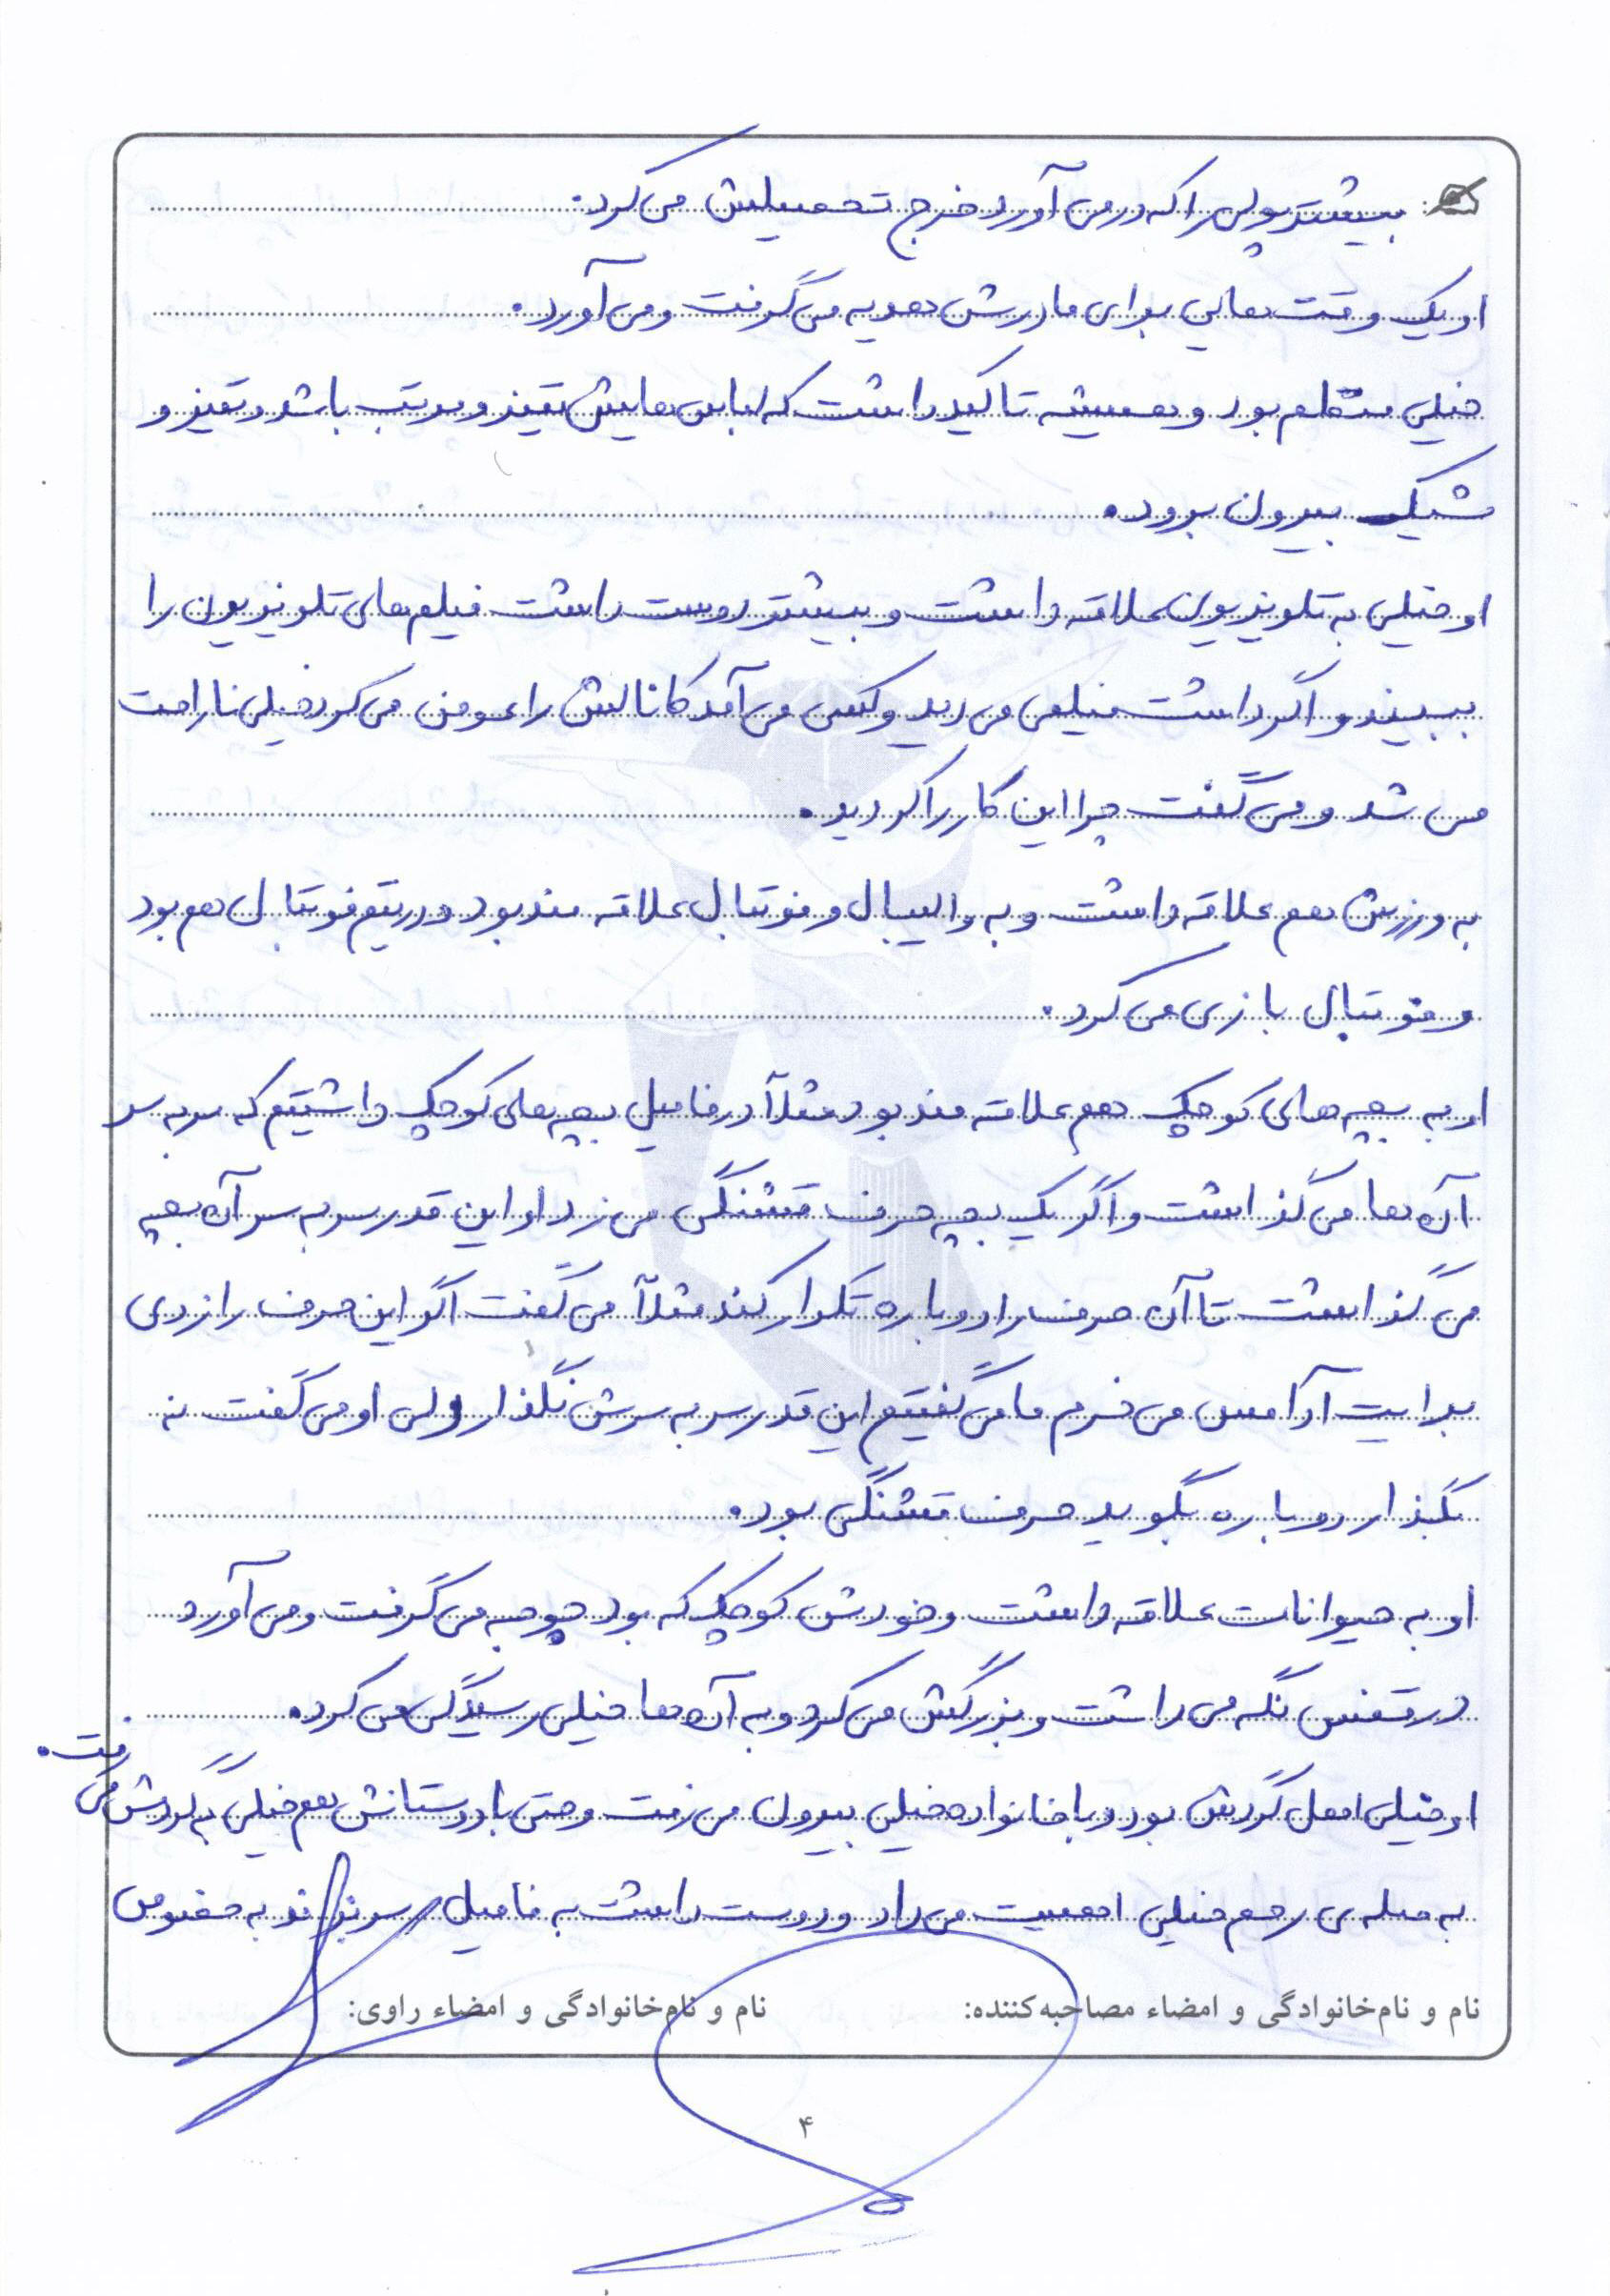 بیشتر پولی را که در می آورد خرج تحصیلش می کرد.
او یک وقت هایی برای مادرش هدیه می گرفت و می آورد.
خیلی منظم بود و همیشه تاکید داشت که لباس هایش تمیز و مرتب باشد و تمیز و
شیک بیرون برود.
او خیلی به تلویزیون علاقه داشت و بیشتر دوست داشت فیلم های تلویزیون را
ببیند و اگر داشت فیلمی می دید و کسی می آمد کانالش را عوض می کرد خیلی ناراحت
می شد و می گفت چرا این کار را کردید.
به ورزش هم علاقه داشت و به والیبال و فوتبال علاقه مند بود و در تیم فوتبال هم بود
و فوتبال بازی می کرد.
او به بچه های کوچک هم علاقه مند بود مثلاً در فامیل بچه های کوچک داشتیم که سر به سر
آن ها می گذاشت و اگر یک بچه حرف قشنگی می زد او این قدر سر به سر آن بچه
می گذاشت تا آن حرف را دوباره تکرار کند مثلاً می گفت اگر این حرف را زدی
برایت آدامس می خرم ما می گفتیم این قدر سر به سرش نگذار ولی او می گفت نه
بگذار دوباره بگوید حرف قشنگی بود.
او به حیوانات علاقه داشت و خودش کوچک که بود جوجه می گرفت و می آورد
در قفس نگه می داشت و بزرگش می کرد و به آن ها خیلی رسیدگی می کرد.
او خیلی اهل گردش بود و با خانواده خیلی بیرون می رفت و حتی با دوستانش هم خیلی به گردش می رفت.
به صله ی رحم خیلی اهمیت می داد و دوست داشت به فامیل سر بزند و به خصوص
نام و نام‌خانوادگی و امضاء مصاحبه‌کننده: نام و نام‌خانوادگی و امضاء راوی:
۴